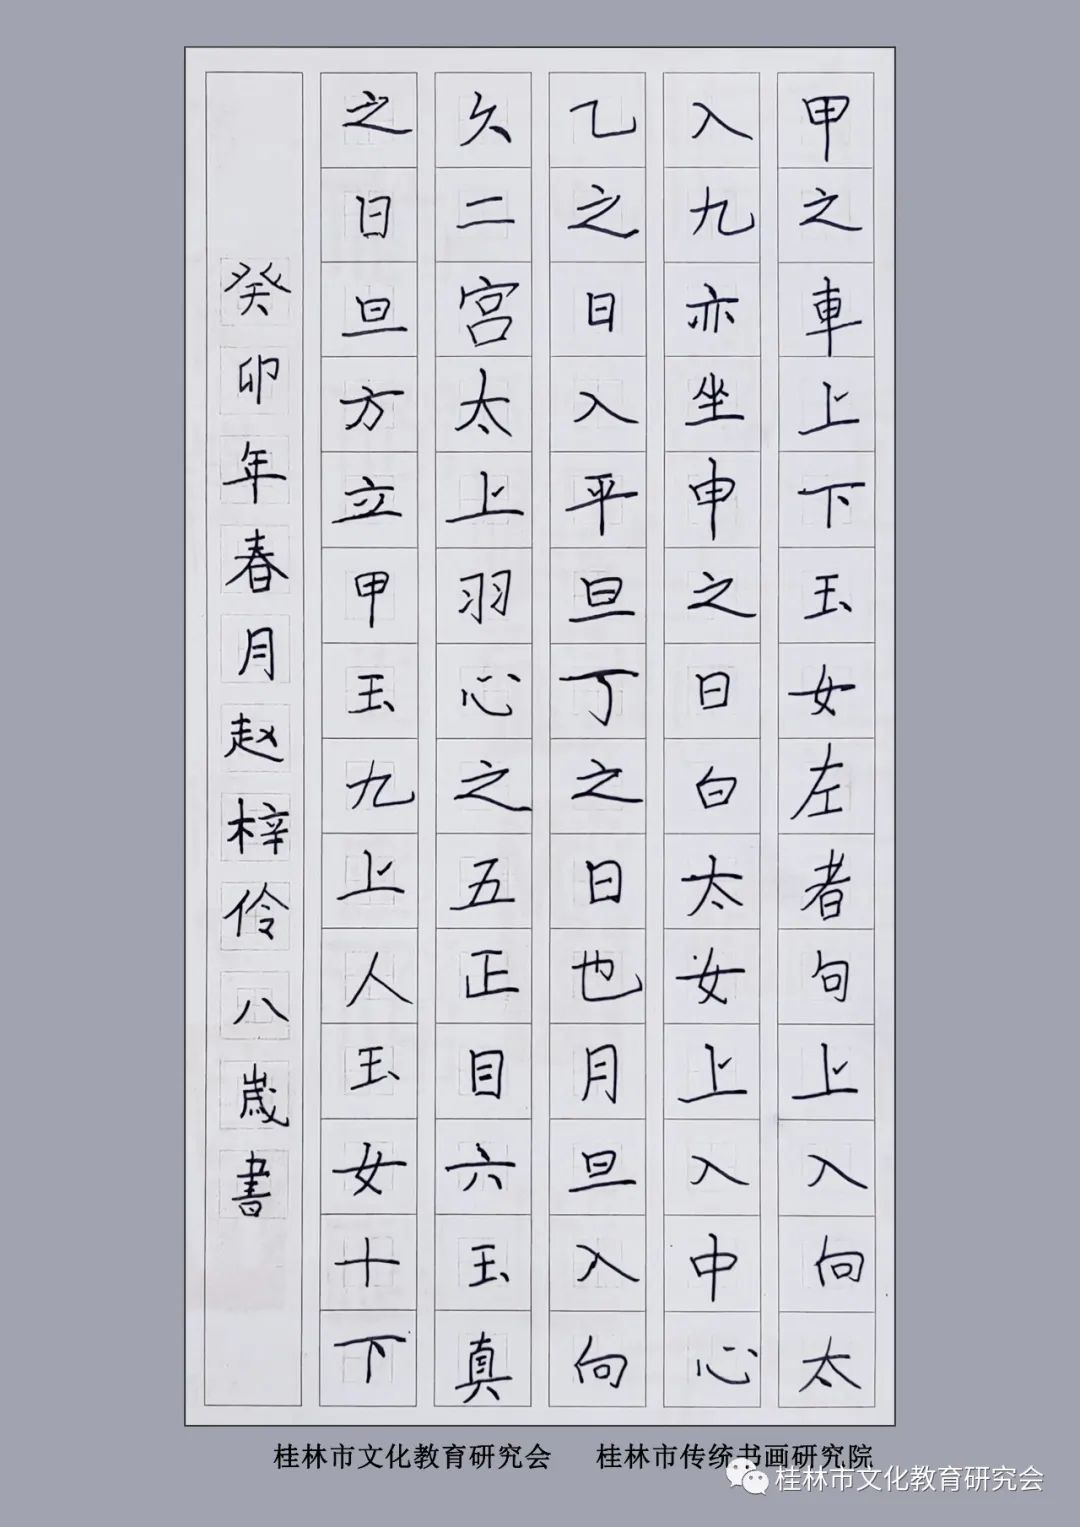 甲之車上下玉女左者句上入向太
入九亦坐申之日白太女上入中心
乙之日入平旦丁之日也月旦入向
久二宫太上羽心之五正目六玉真
之日旦方立甲玉九上人玉女十下
癸卯年春月赵梓伶八歳書
桂林市文化教育研究会 桂林市传统书画研究院
桂林市文化教育研究会